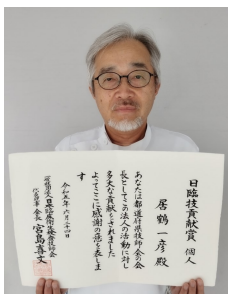 日臨技貢献賞 個人
居鶴一彦殿
あなたは都道府県技師会の会
長としてこの法人の活動に対し
多大な貢献をされました
よってここに感謝の意を表しま
す
令和五年六月二十四日
一般社団法人日本臨床衛生検査技師会
代表理事 会長 宮島喜文